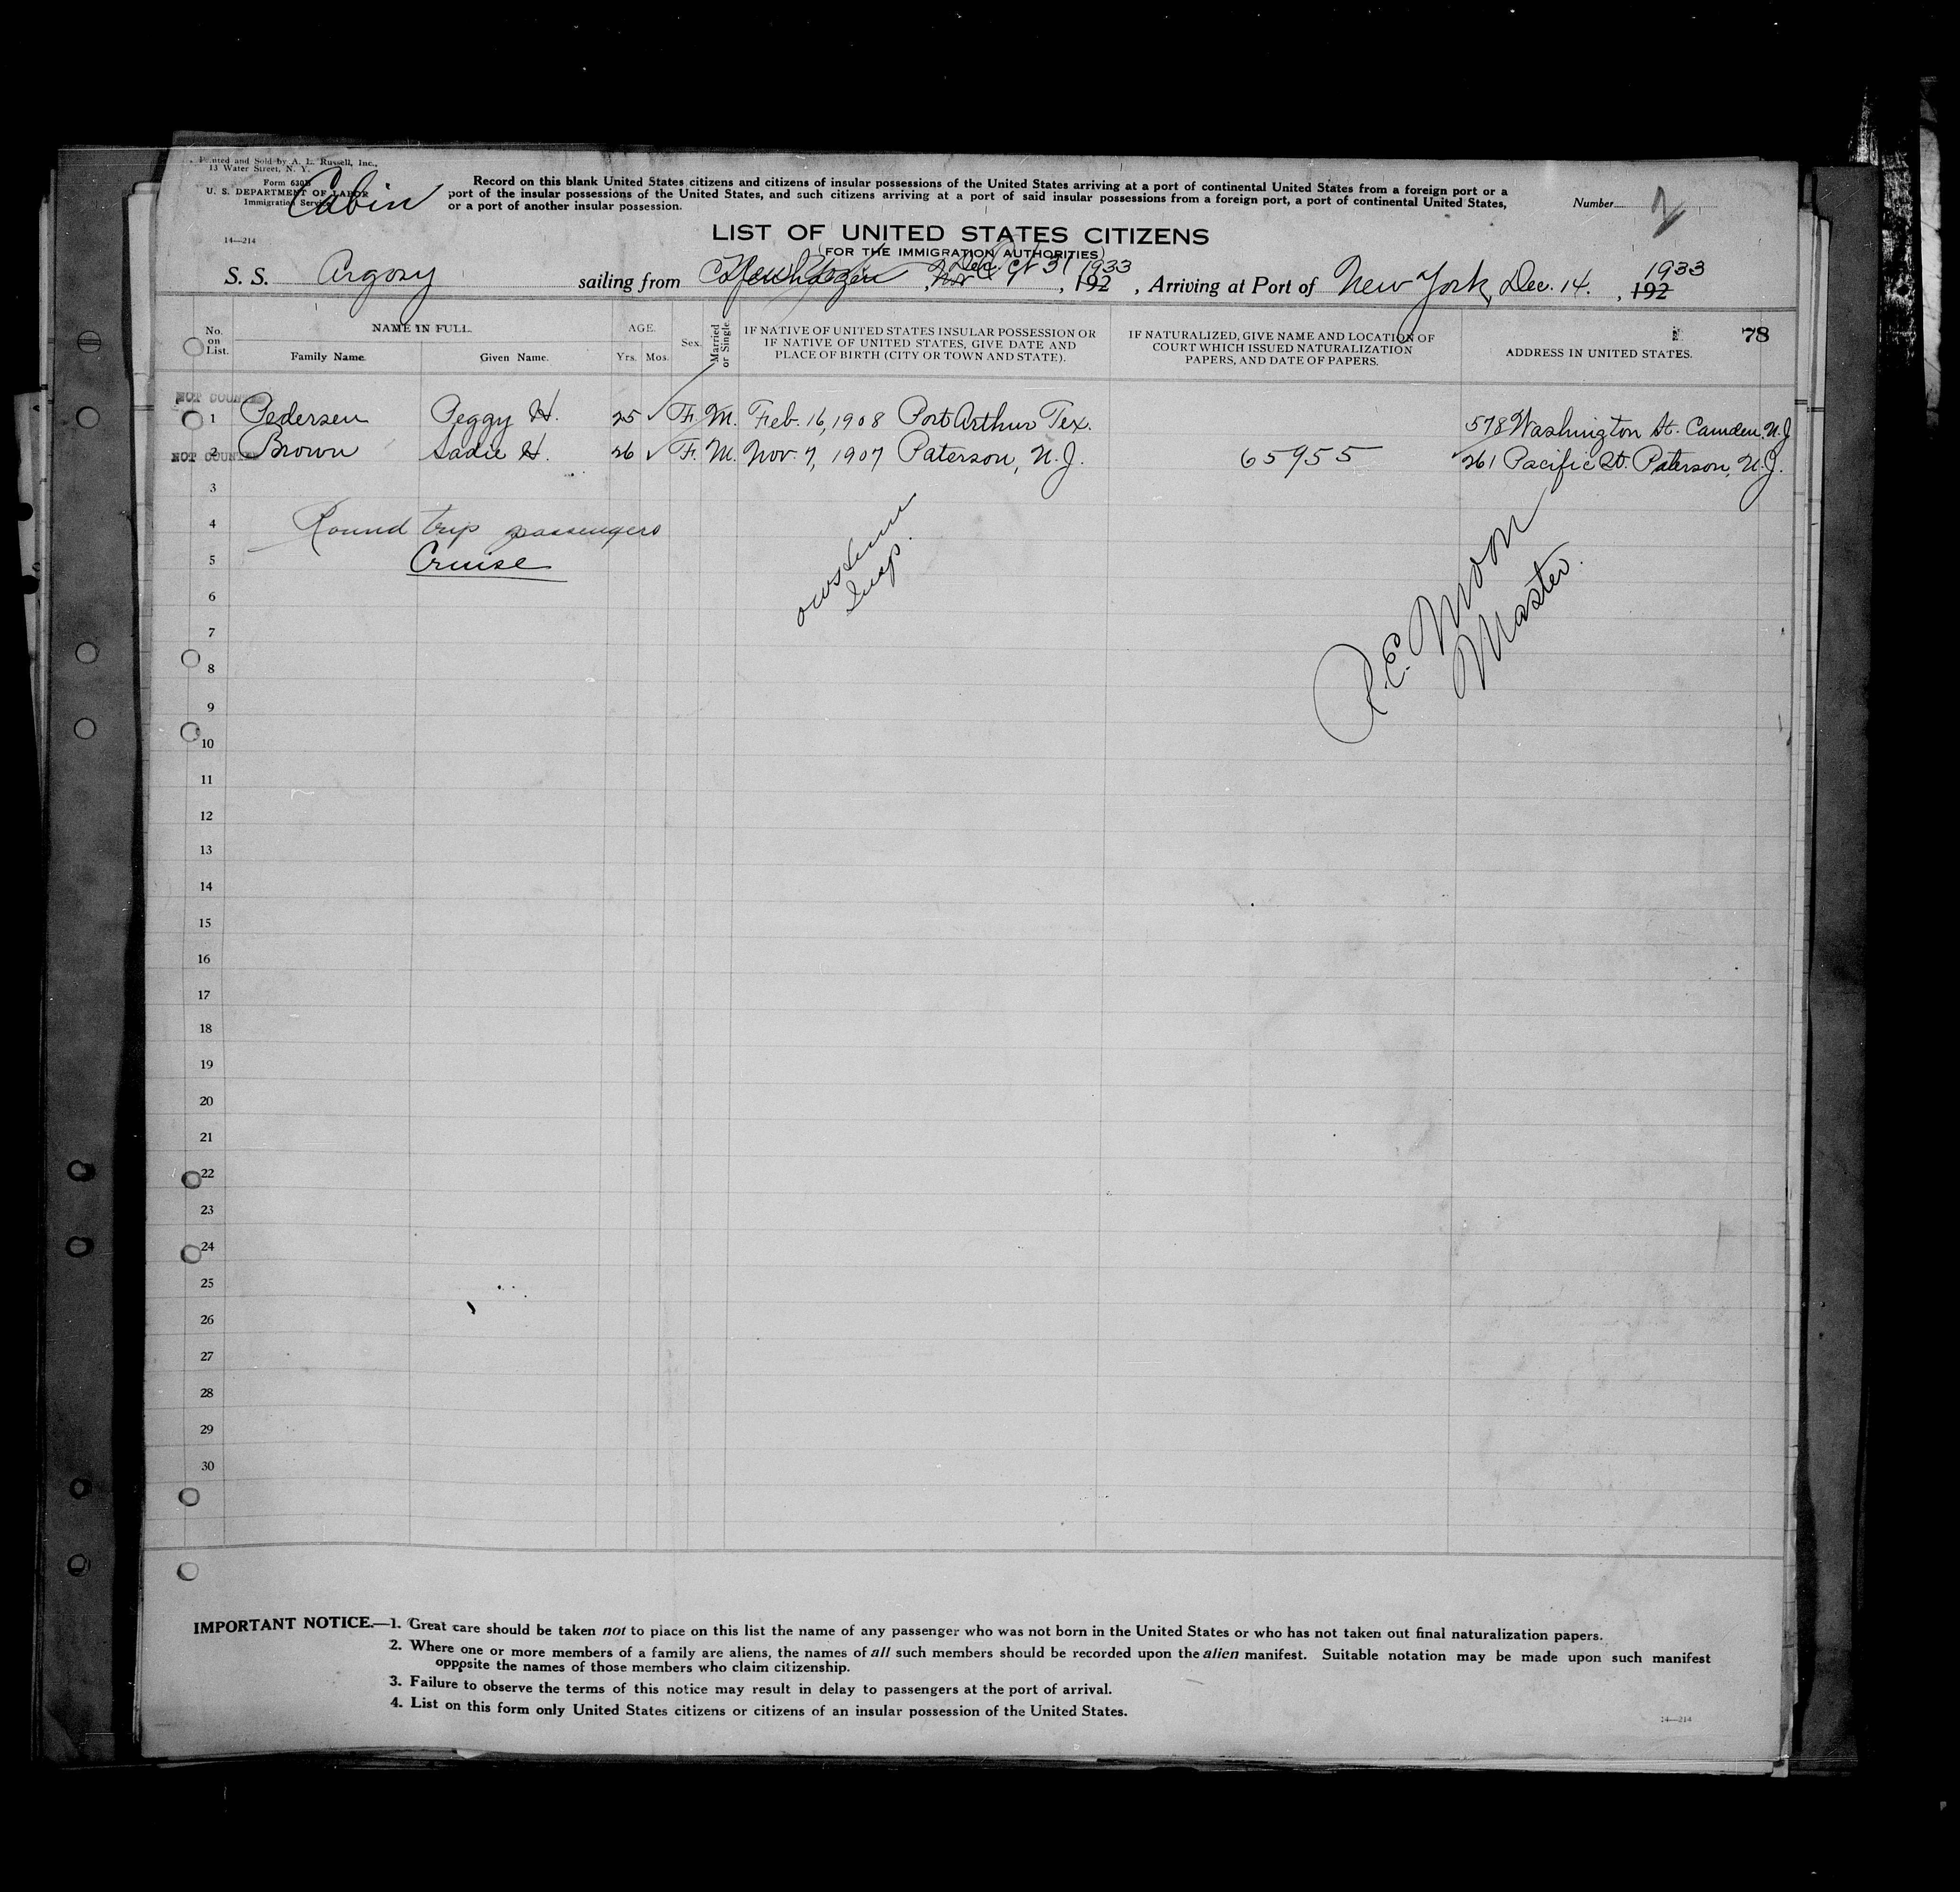 Printed and Sold by A. L. Russell, Inc.,
13 Water Street, N. Y.
Form 630
U. S. DEPARTMENT OF LABOR
Immigration Service
Cabin
Record on this blank United States citizens and citizens of insular possessions of the United States arriving at a port of continental United States from a foreign port or a
port of the insular possessions of the United States, and such citizens arriving at a port of said insular possessions from a foreign port, a port of continental United States,
or a port of another insular possession.
Number 2
14—214
LIST OF UNITED STATES CITIZENS
(FOR THE IMMIGRATION AUTHORITIES)
S. S. Argosy sailing from Copenhagen Oct 31 1933 192 , Arriving at Port of New York, Dec. 14. 1933 , 192
No. on List.
NAME IN FULL.
Family Name. Given Name.
AGE.
Yrs. Mos.
Sex.
Married or Single
IF NATIVE OF UNITED STATES INSULAR POSSESSION OR
IF NATIVE OF UNITED STATES, GIVE DATE AND
PLACE OF BIRTH (CITY OR TOWN AND STATE).
IF NATURALIZED, GIVE NAME AND LOCATION OF
COURT WHICH ISSUED NATURALIZATION
PAPERS, AND DATE OF PAPERS.
ADDRESS IN UNITED STATES.
78
NOT COUNTED
1 Pedersen Peggy H. 25 ✓ F. M. Feb. 16, 1908 Port Arthur Tex. 578 Washington St. Camden, N.J.
NOT COUNTED
2 Brown Sadie H. 26 ✓ F. M. Nov. 7, 1907 Paterson, N.J. 65955 261 Pacific St. Paterson, N.J.
3
4 Round trip passengers
5 Cruise
Insp.
R.E. Moon
Master.
6
7
8
9
10
11
12
13
14
15
16
17
18
19
20
21
22
23
24
25
26
27
28
29
30
IMPORTANT NOTICE.—1. Great care should be taken not to place on this list the name of any passenger who was not born in the United States or who has not taken out final naturalization papers.
2. Where one or more members of a family are aliens, the names of all such members should be recorded upon the alien manifest. Suitable notation may be made upon such manifest
opposite the names of those members who claim citizenship.
3. Failure to observe the terms of this notice may result in delay to passengers at the port of arrival.
4. List on this form only United States citizens or citizens of an insular possession of the United States.
14—214